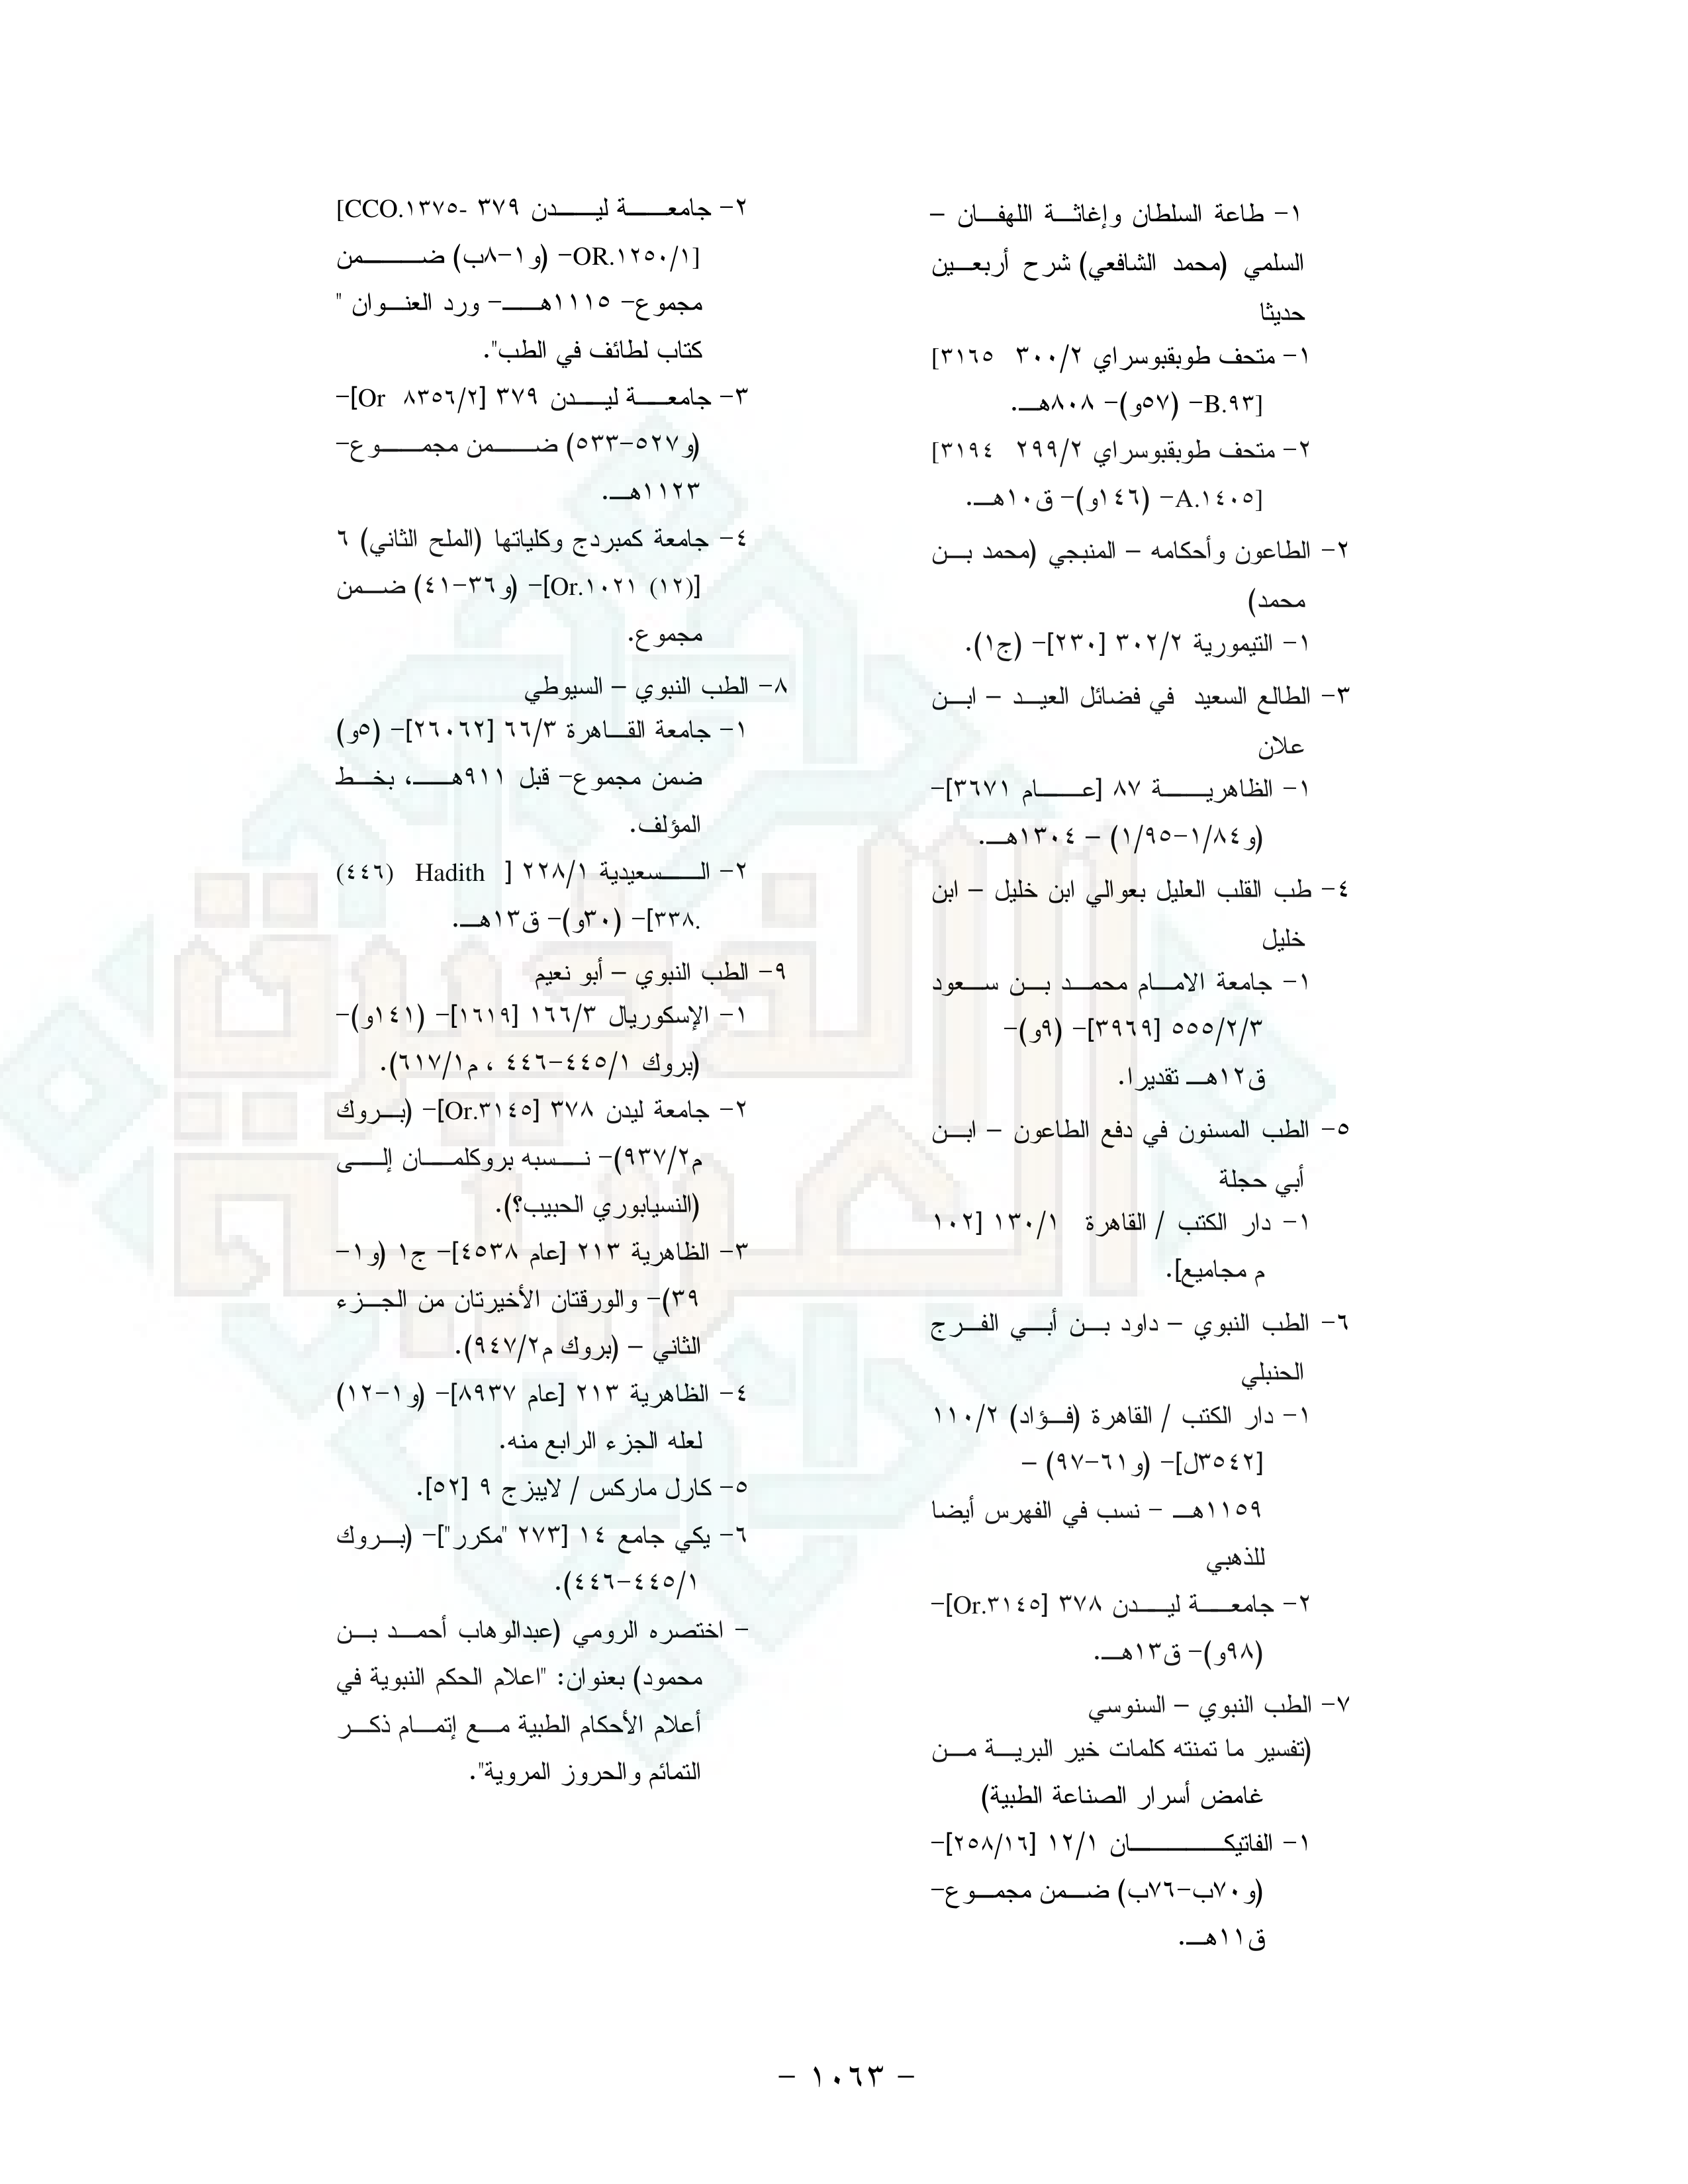 ١- طاعة السلطان وإغاثة اللهفان –
السلمي (محمد الشافعي) شرح أربعين
حديثا
١- متحف طوبقبوسراي ٣٠٠/٢ ٣١٦٥]
[B.٩٣- (٥٧و)- ٨٠٨هـ.
٢- متحف طوبقبوسراي ٢٩٩/٢ ٣١٩٤]
[A.١٤٠٥- (١٤٦و)- ق١٠هـ.
٢- الطاعون وأحكامه – المنبجي (محمد بن
محمد)
١- التيمورية ٣٠٢/٢ [٢٣٠]- (ج١).
٣- الطالع السعيد في فضائل العيد – ابن
علان
١- الظاهرية ٨٧ [عام ٣٦٧١]-
(و١/٨٤-١/٩٥) – ١٣٠٤هـ.
٤- طب القلب العليل بعوالي ابن خليل – ابن
خليل
١- جامعة الامام محمد بن سعود
٥٥٥/٢/٣ [٣٩٦٩]- (٩و)-
ق١٢هـ تقديرا.
٥- الطب المسنون في دفع الطاعون – ابن
أبي حجلة
١- دار الكتب / القاهرة ١٣٠/١ [١٠٢
م مجاميع].
٦- الطب النبوي – داود بن أبي الفرج
الحنبلي
١- دار الكتب / القاهرة (فؤاد) ١١٠/٢
[٣٥٤٢ل]- (و٦١-٩٧) –
١١٥٩هـ - نسب في الفهرس أيضا
للذهبي
٢- جامعة ليدن ٣٧٨ [Or.٣١٤٥]-
(٩٨و)- ق١٣هـ.
٧- الطب النبوي – السنوسي
(تفسير ما تمنته كلمات خير البرية من
غامض أسرار الصناعة الطبية)
١- الفاتيكان ١٢/١ [٢٥٨/١٦]-
(و٧٠ب-٧٦ب) ضمن مجموع-
ق١١هـ.
٢- جامعة ليدن ٣٧٩ -CCO.١٣٧٥]
[OR.١٢٥٠/١- (و١-٨ب) ضمن
مجموع- ١١١٥هـ- ورد العنوان "
كتاب لطائف في الطب".
٣- جامعة ليدن ٣٧٩ [Or ٨٣٥٦/٢]-
(و٥٢٧-٥٣٣) ضمن مجموع-
١١٢٣هـ.
٤- جامعة كمبردج وكلياتها (الملح الثاني) ٦
[Or.١٠٢١ (١٢)]- (و٣٦-٤١) ضمن
مجموع.
٨- الطب النبوي – السيوطي
١- جامعة القاهرة ٦٦/٣ [٢٦٠٦٢]- (٥و)
ضمن مجموع- قبل ٩١١هـ، بخط
المؤلف.
٢- السعيدية ٢٢٨/١ [ Hadith (٤٤٦)
.٣٣٨]- (٣٠و)- ق١٣هـ.
٩- الطب النبوي – أبو نعيم
١- الإسكوريال ١٦٦/٣ [١٦١٩]- (١٤١و)-
(بروك ٤٤٥/١-٤٤٦ ، م٦١٧/١).
٢- جامعة ليدن ٣٧٨ [Or.٣١٤٥]- (بروك
م٩٣٧/٢)- نسبه بروكلمان إلى
(النسيابوري الحبيب؟).
٣- الظاهرية ٢١٣ [عام ٤٥٣٨]- ج١ (و١-
٣٩)- والورقتان الأخيرتان من الجزء
الثاني – (بروك م٩٤٧/٢).
٤- الظاهرية ٢١٣ [عام ٨٩٣٧]- (و١-١٢)
لعله الجزء الرابع منه.
٥- كارل ماركس / لايبزج ٩ [٥٢].
٦- يكي جامع ١٤ [٢٧٣ "مكرر"]- (بروك
٤٤٥/١-٤٤٦).
- اختصره الرومي (عبدالوهاب أحمد بن
محمود) بعنوان: "اعلام الحكم النبوية في
أعلام الأحكام الطبية مع إتمام ذكر
التمائم والحروز المروية".
- ١٠٦٣ -